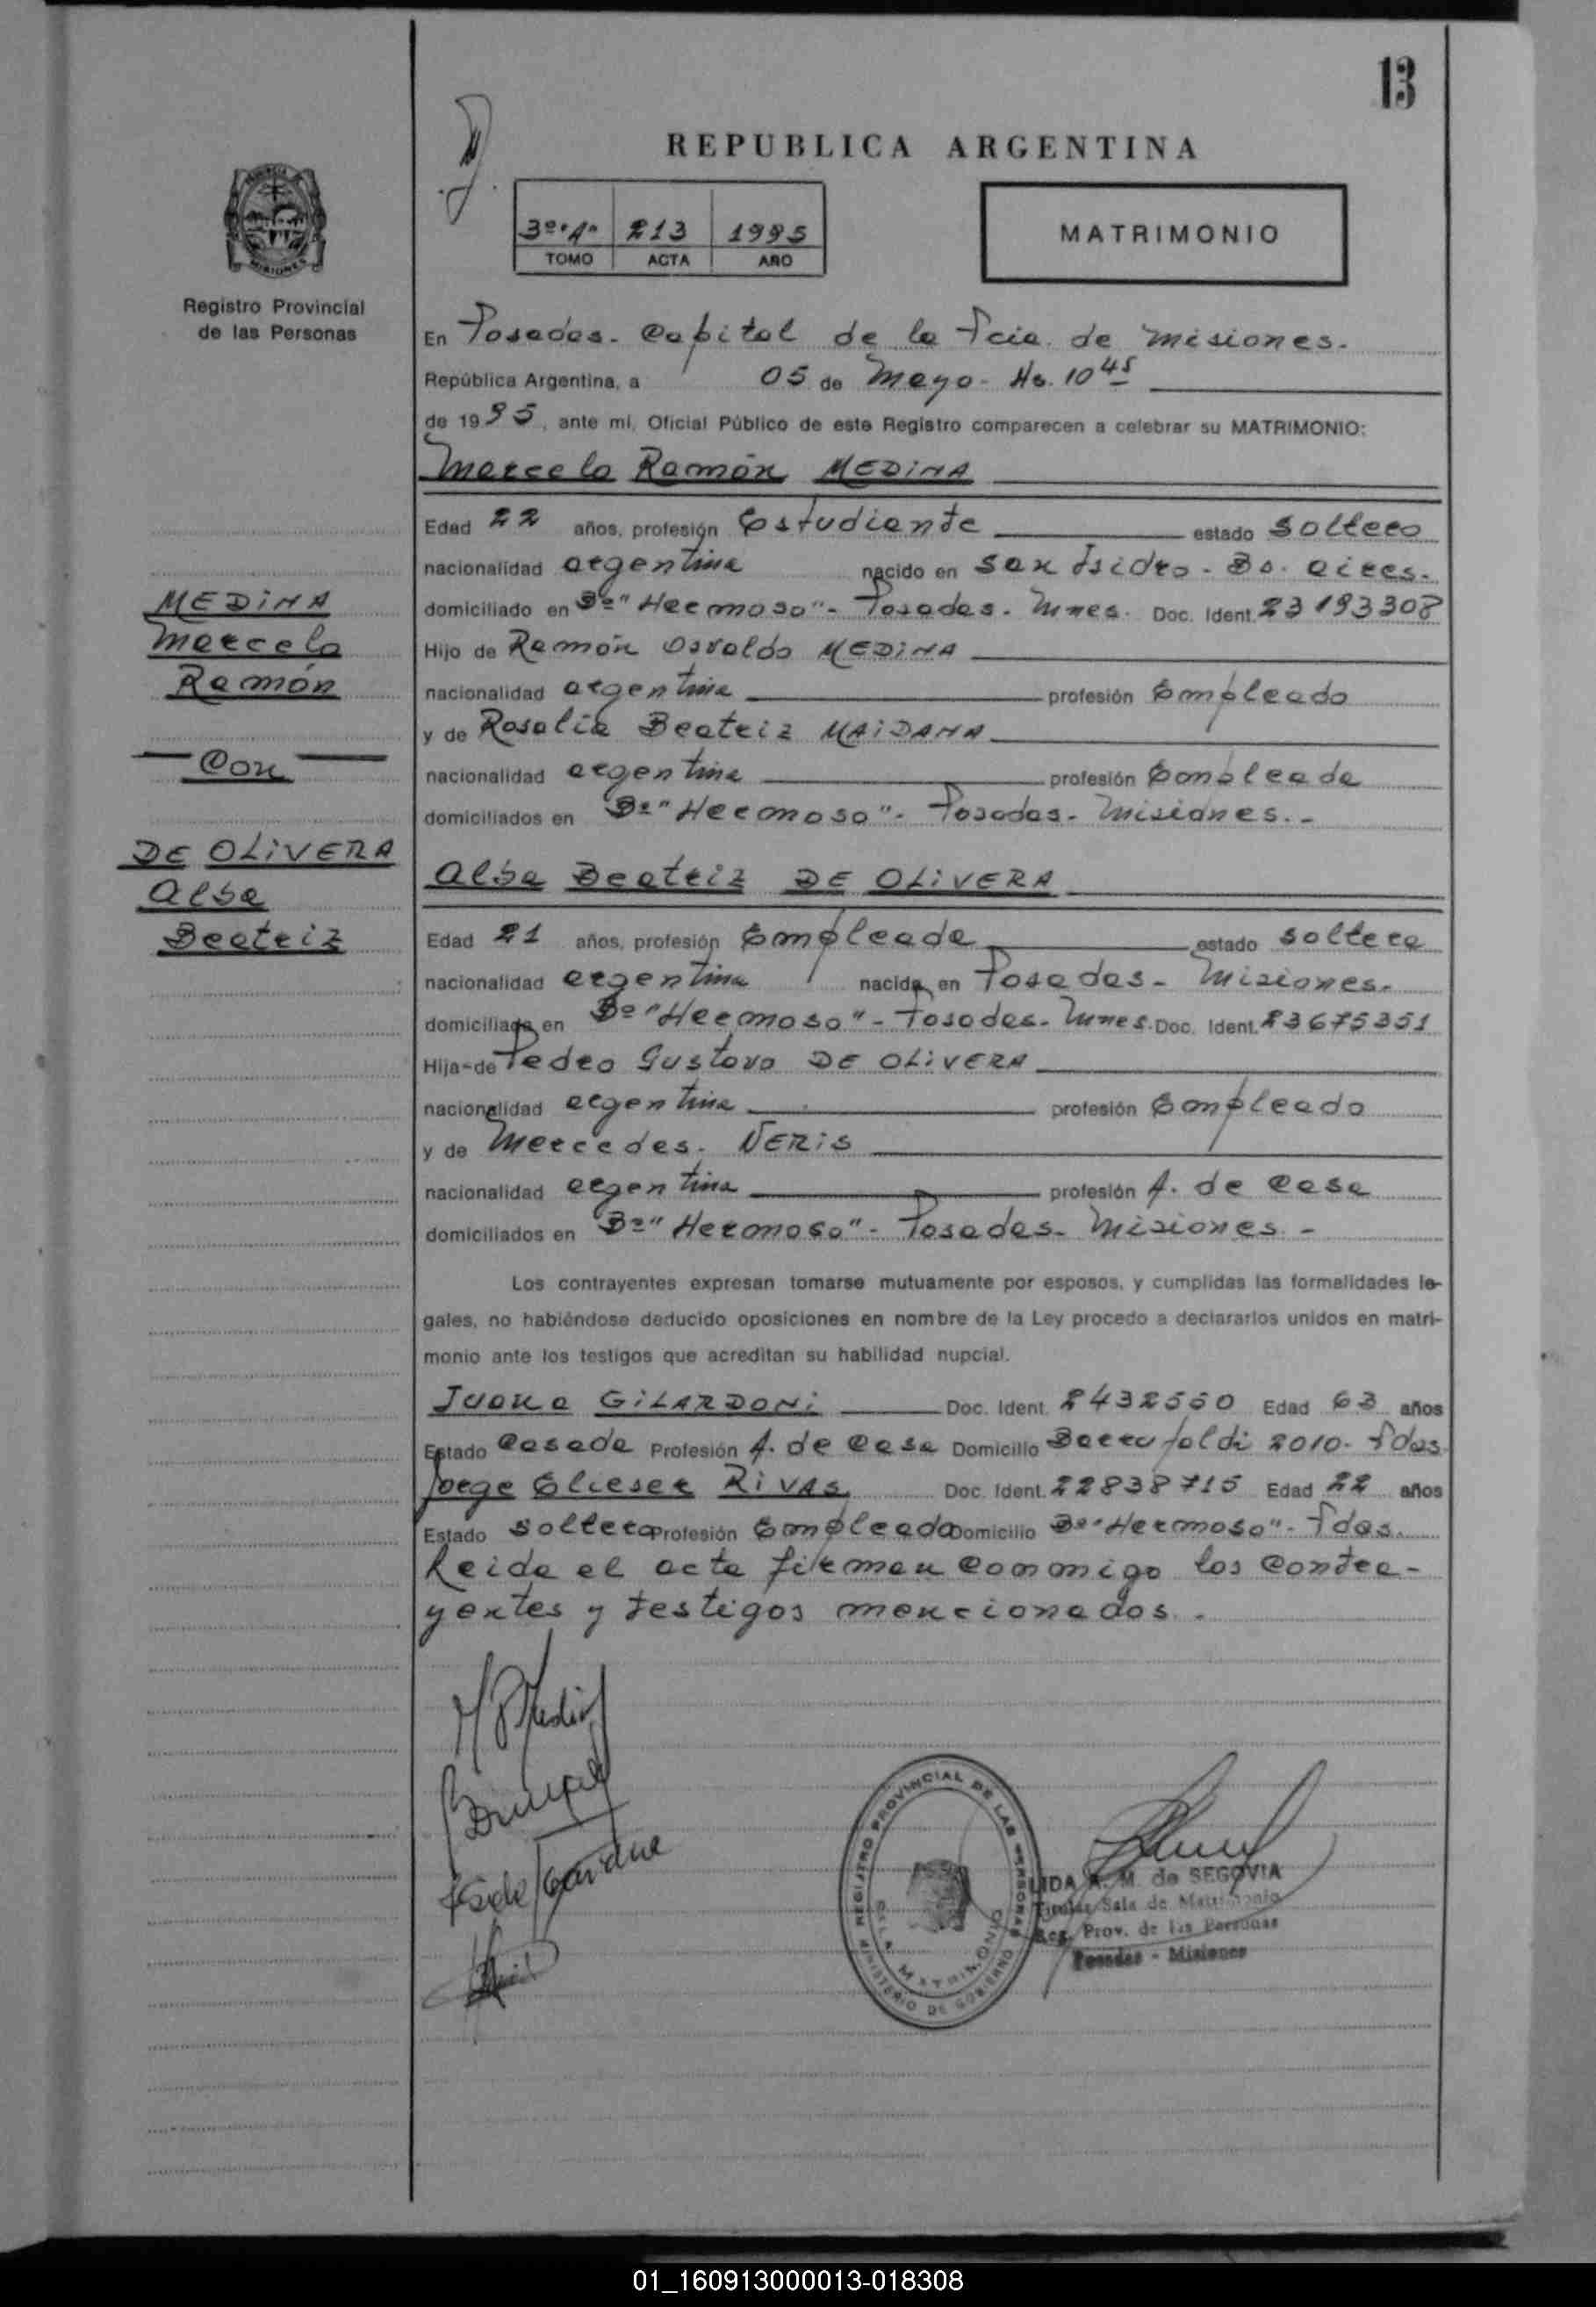 13
REPUBLICA ARGENTINA
3º "A" 213 1995
TOMO ACTA AÑO
MATRIMONIO
Registro Provincial
de las Personas
En Posadas - Capital de la Pcia. de Misiones.
República Argentina, a 05 de Mayo - Hs. 10 45
de 1995, ante mí, Oficial Público de este Registro comparecen a celebrar su MATRIMONIO:
Marcelo Ramón MEDINA
Edad 22 años, profesión Estudiante estado soltero
nacionalidad argentina nacido en San Isidro - Bs. Aires.
domiciliado en Bº "Hermoso" - Posadas - Mnes. Doc. Ident. 23193308
Hijo de Ramón Osvaldo MEDINA
nacionalidad argentina profesión Empleado
y de Rosalia Beatriz MAIDANA
nacionalidad argentina profesión Empleada
domiciliados en Bº "Hermoso" - Posadas - Misiones. -
MEDINA
Marcelo
Ramón
Con
DE OLIVERA
Alba
Beatriz
Alba Beatriz DE OLIVERA
Edad 21 años, profesión Empleada estado soltera
nacionalidad argentina nacida en Posadas - Misiones.
domiciliada en Bº "Hermoso" - Posadas - Mnes. Doc. Ident. 23675351
Hija de Pedro Gustavo DE OLIVERA
nacionalidad argentina profesión Empleado
y de Mercedes NERIS
nacionalidad argentina profesión A. de casa
domiciliados en Bº "Hermoso" - Posadas - Misiones. -
Los contrayentes expresan tomarse mutuamente por esposos, y cumplidas las formalidades le-
gales, no habiéndose deducido oposiciones en nombre de la Ley procedo a declararlos unidos en matri-
monio ante los testigos que acreditan su habilidad nupcial.
Juana GILARDONI Doc. Ident. 2432550 Edad 63 años
Estado casada Profesión A. de casa Domicilio 2010 - Pdas.
Jorge Elieser RIVAS Doc. Ident. 22838715 Edad 22 años
Estado soltero Profesión Empleado Domicilio Bº "Hermoso" - Pdas.
Leida el acta firman conmigo los contra-
yentes y testigos mencionados. -
REGISTRO PROVINCIAL DE LAS PERSONAS
MINISTERIO DE GOBIERNO
SALA MATRIMONIO
LIDA A. M. de SEGOVIA
Titular Sala de Matrimonio
Reg. Prov. de las Personas
Posadas - Misiones
01_160913000013-018308